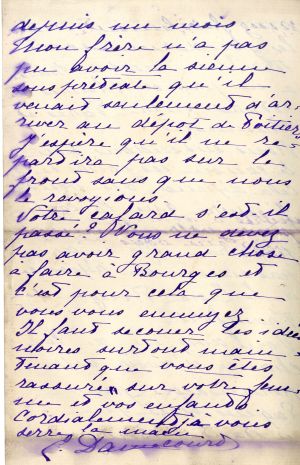 depuis un mois
Mon frère n'a pas
pu avoir la sienne
sous prétexte qu'il
venait seulement d'ar
river au dépôt de Poitiers
J'espère qu'il ne re-
partira pas sur le
front sans que nous
le revoyions.
Votre cafard s'est il
passé? Vous ne devez
pas avoir grand chose
a faire à Bourges et
c'est pour cela que
vous vous ennuyez
Il faut secouer ces idées
noires surtout main-
tenant que vous êtes
rassuré sur votre fem
me et vos enfants
Cordialement à vous
serre la main